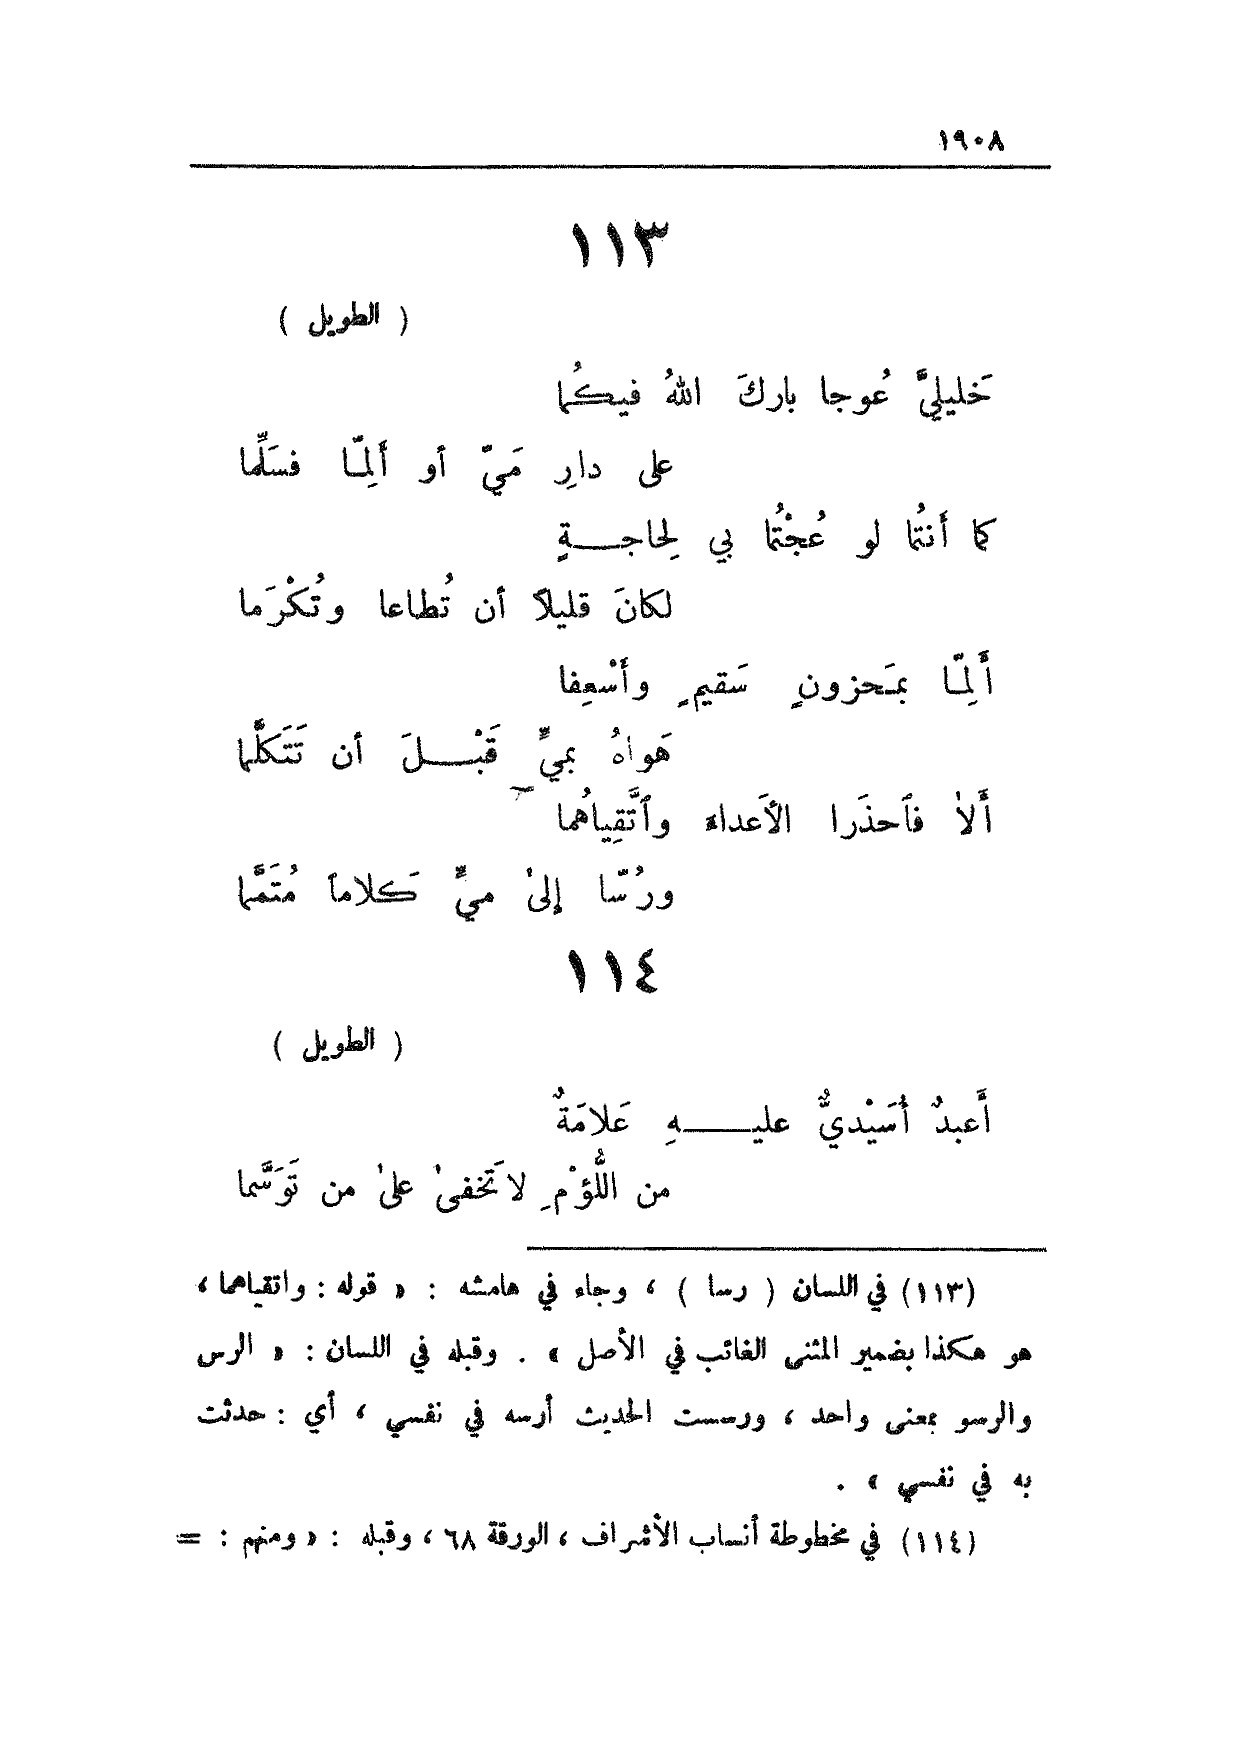 ١٩٠٨
١١٣
( الطويل )
خَليليَّ عُوجا باركَ اللهُ فيكُما
على دارِ مَيّ أو أَلِمّا فسَلِّما
كما أَنتُما لو عُجْتُما بي لِحاجةٍ
لكانَ قليلاً أن تُطاعا وتُكْرَما
أَلِمّا بمَحزونٍ سَقيمٍ وأَسْعِفا
هَواهُ بميٍّ قَبْلَ أن تَتَكَلَّما
أَلا فٱحذَرا الأَعداءَ وٱتَّقِياهُما
ورُسّا إلىٰ ميٍّ كَلاماً مُتَمَّما
١١٤
( الطويل )
أَعبدٌ أُسَيْديٌّ عليهِ عَلامَةٌ
من اللُّؤْمِ لا تَخفىٰ علىٰ من تَوَسَّما
(١١٣) في اللسان ( رسا ) ، وجاء في هامشه : « قوله : واتقياهما ،
هو هكذا بضمير المثنى الغائب في الأصل » . وقبله في اللسان : « الرس
والرسو بمعنى واحد ، ورسست الحديث أرسه في نفسي ، أي : حدثت
به في نفسي » .
(١١٤) في مخطوطة أنساب الأشراف ، الورقة ٦٨ ، وقبله : « ومنهم : =